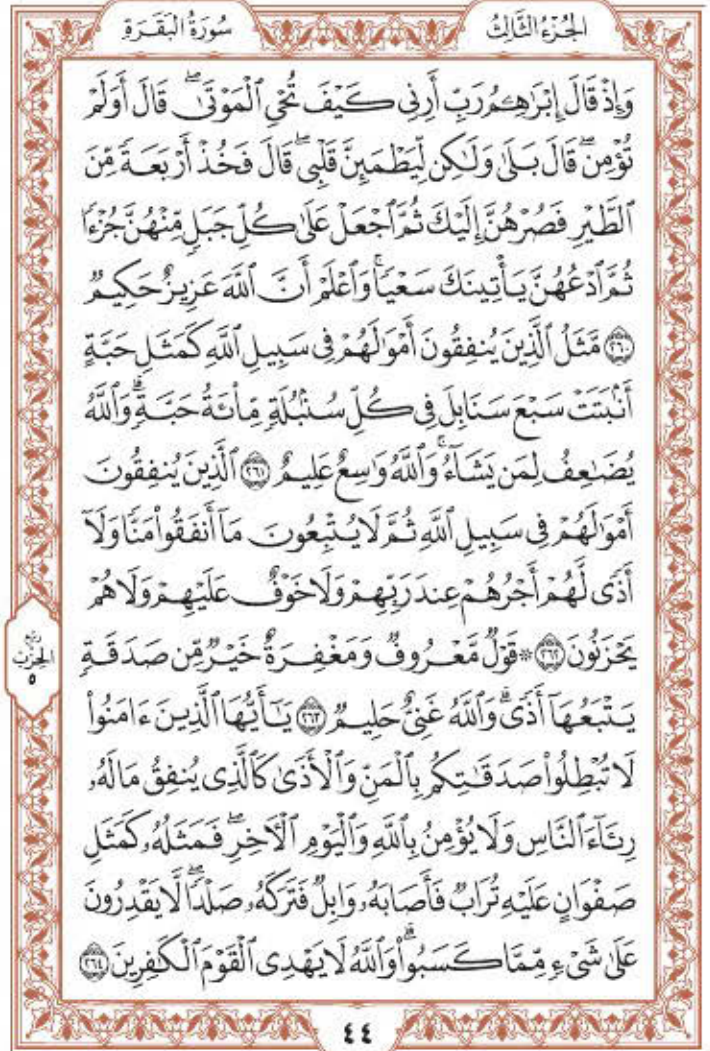 الجُزْءُ الثَّالِثُ
سُورَةُ البَقَرَةِ
وَإِذْ قَالَ إِبْرَٰهِـۧمُ رَبِّ أَرِنِى كَيْفَ تُحْىِ ٱلْمَوْتَىٰۖ قَالَ أَوَلَمْ
تُؤْمِنۖ قَالَ بَلَىٰ وَلَـٰكِن لِّيَطْمَئِنَّ قَلْبِىۖ قَالَ فَخُذْ أَرْبَعَةً مِّنَ
ٱلطَّيْرِ فَصُرْهُنَّ إِلَيْكَ ثُمَّ ٱجْعَلْ عَلَىٰ كُلِّ جَبَلٍ مِّنْهُنَّ جُزْءًا
ثُمَّ ٱدْعُهُنَّ يَأْتِينَكَ سَعْيًاۚ وَٱعْلَمْ أَنَّ ٱللَّهَ عَزِيزٌ حَكِيمٌ
٢٦٠ مَّثَلُ ٱلَّذِينَ يُنفِقُونَ أَمْوَٰلَهُمْ فِى سَبِيلِ ٱللَّهِ كَمَثَلِ حَبَّةٍ
أَنۢبَتَتْ سَبْعَ سَنَابِلَ فِى كُلِّ سُنۢبُلَةٍ مِّا۟ئَةُ حَبَّةٍۗ وَٱللَّهُ
يُضَـٰعِفُ لِمَن يَشَآءُۚ وَٱللَّهُ وَٰسِعٌ عَلِيمٌ ٢٦١ ٱلَّذِينَ يُنفِقُونَ
أَمْوَٰلَهُمْ فِى سَبِيلِ ٱللَّهِ ثُمَّ لَا يُتْبِعُونَ مَآ أَنفَقُوا۟ مَنًّا وَلَآ
أَذًى لَّهُمْ أَجْرُهُمْ عِندَ رَبِّهِمْ وَلَا خَوْفٌ عَلَيْهِمْ وَلَا هُمْ
يَحْزَنُونَ ٢٦٢ ۞ قَوْلٌ مَّعْرُوفٌ وَمَغْفِرَةٌ خَيْرٌ مِّن صَدَقَةٍ
رُبْع
الحِزْب
٥
يَتْبَعُهَآ أَذًىۗ وَٱللَّهُ غَنِىٌّ حَلِيمٌ ٢٦٣ يَـٰٓأَيُّهَا ٱلَّذِينَ ءَامَنُوا۟
لَا تُبْطِلُوا۟ صَدَقَـٰتِكُم بِٱلْمَنِّ وَٱلْأَذَىٰ كَٱلَّذِى يُنفِقُ مَالَهُۥ
رِئَآءَ ٱلنَّاسِ وَلَا يُؤْمِنُ بِٱللَّهِ وَٱلْيَوْمِ ٱلْـَٔاخِرِۖ فَمَثَلُهُۥ كَمَثَلِ
صَفْوَانٍ عَلَيْهِ تُرَابٌ فَأَصَابَهُۥ وَابِلٌ فَتَرَكَهُۥ صَلْدًاۖ لَّا يَقْدِرُونَ
عَلَىٰ شَىْءٍ مِّمَّا كَسَبُوا۟ۗ وَٱللَّهُ لَا يَهْدِى ٱلْقَوْمَ ٱلْكَـٰفِرِينَ ٢٦٤
٤٤